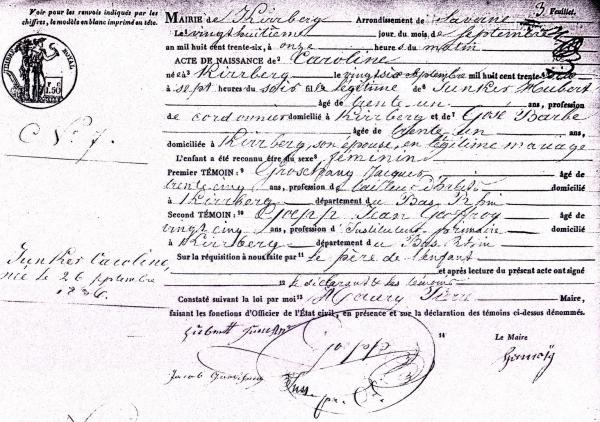 Voir pour les renvois indiqués par les
chiffres, le modèle en blanc imprimé en tête.
3 Feuillet.
TIMBRE ROYAL
1.50
MAIRIE de Kirrberg Arrondissement de Saverne
Le vingt huitième jour du mois de Septembre
an mil huit cent trente-six, à onze heures du matin
ACTE DE NAISSANCE de 2 Caroline
né e à 3 Kirrberg le vingt six Septembre mil huit cent trente-six
à 4 sept heures du soir fille légitime de 6 Junker Hubert
âgé de trente un ans, profession
de cordonnier domicilié à Kirrberg et de 7 Gosé Barbe
âgée de trente un ans,
domiciliée à Kirrberg, son épouse, en légitime mariage
L'enfant a été reconnu être du sexe 8 féminin
Premier TÉMOIN : 9 Jacques âgé de
trente cinq ans, profession de tailleur d'habits domicilié
à Kirrberg département du Bas Rhin
Second TÉMOIN : 10 Goepp Jean Geoffroy âgé de
vingt cinq ans, profession d'Instituteur primaire domicilié
à Kirrberg département du Bas Rhin
Sur la réquisition à nous faite par 11 le père de l'enfant
et après lecture du présent acte ont signé
12 le déclarant & les témoins
Constaté suivant la loi par moi 13 Maire,
faisant les fonctions d'Officier de l'État civil, en présence et sur la déclaration des témoins ci-dessus dénommés.
C N° 7.
Junker Caroline,
née le 26 Septembre
1836.
14
Le Maire
Goepp
Jacob